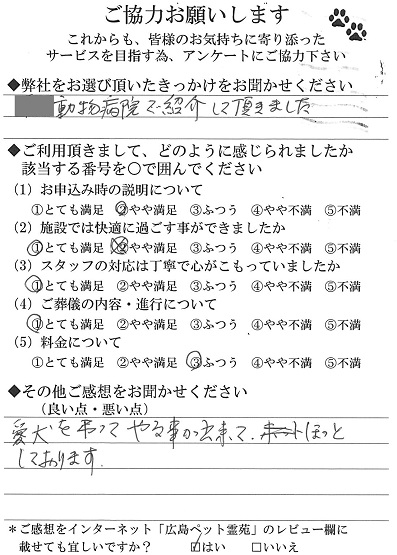 ご協力お願いします
これからも、皆様のお気持ちに寄り添った
サービスを目指す為、アンケートにご協力下さい
◆弊社をお選び頂いたきっかけをお聞かせください
動物病院で紹介して頂きました
◆ご利用頂きまして、どのように感じられましたか
該当する番号を〇で囲んでください
(1) お申込み時の説明について
①とても満足 ②やや満足 ③ふつう ④やや不満 ⑤不満
(2) 施設では快適に過ごす事ができましたか
①とても満足 ②やや満足 ③ふつう ④やや不満 ⑤不満
(3) スタッフの対応は丁寧で心がこもっていましたか
①とても満足 ②やや満足 ③ふつう ④やや不満 ⑤不満
(4) ご葬儀の内容・進行について
①とても満足 ②やや満足 ③ふつう ④やや不満 ⑤不満
(5) 料金について
①とても満足 ②やや満足 ③ふつう ④やや不満 ⑤不満
◆その他ご感想をお聞かせください
(良い点・悪い点)
愛犬を弔ってやる事が出来て、ほっと
しております。
*ご感想をインターネット「広島ペット霊苑」のレビュー欄に
載せても宜しいですか？ ☑はい □いいえ